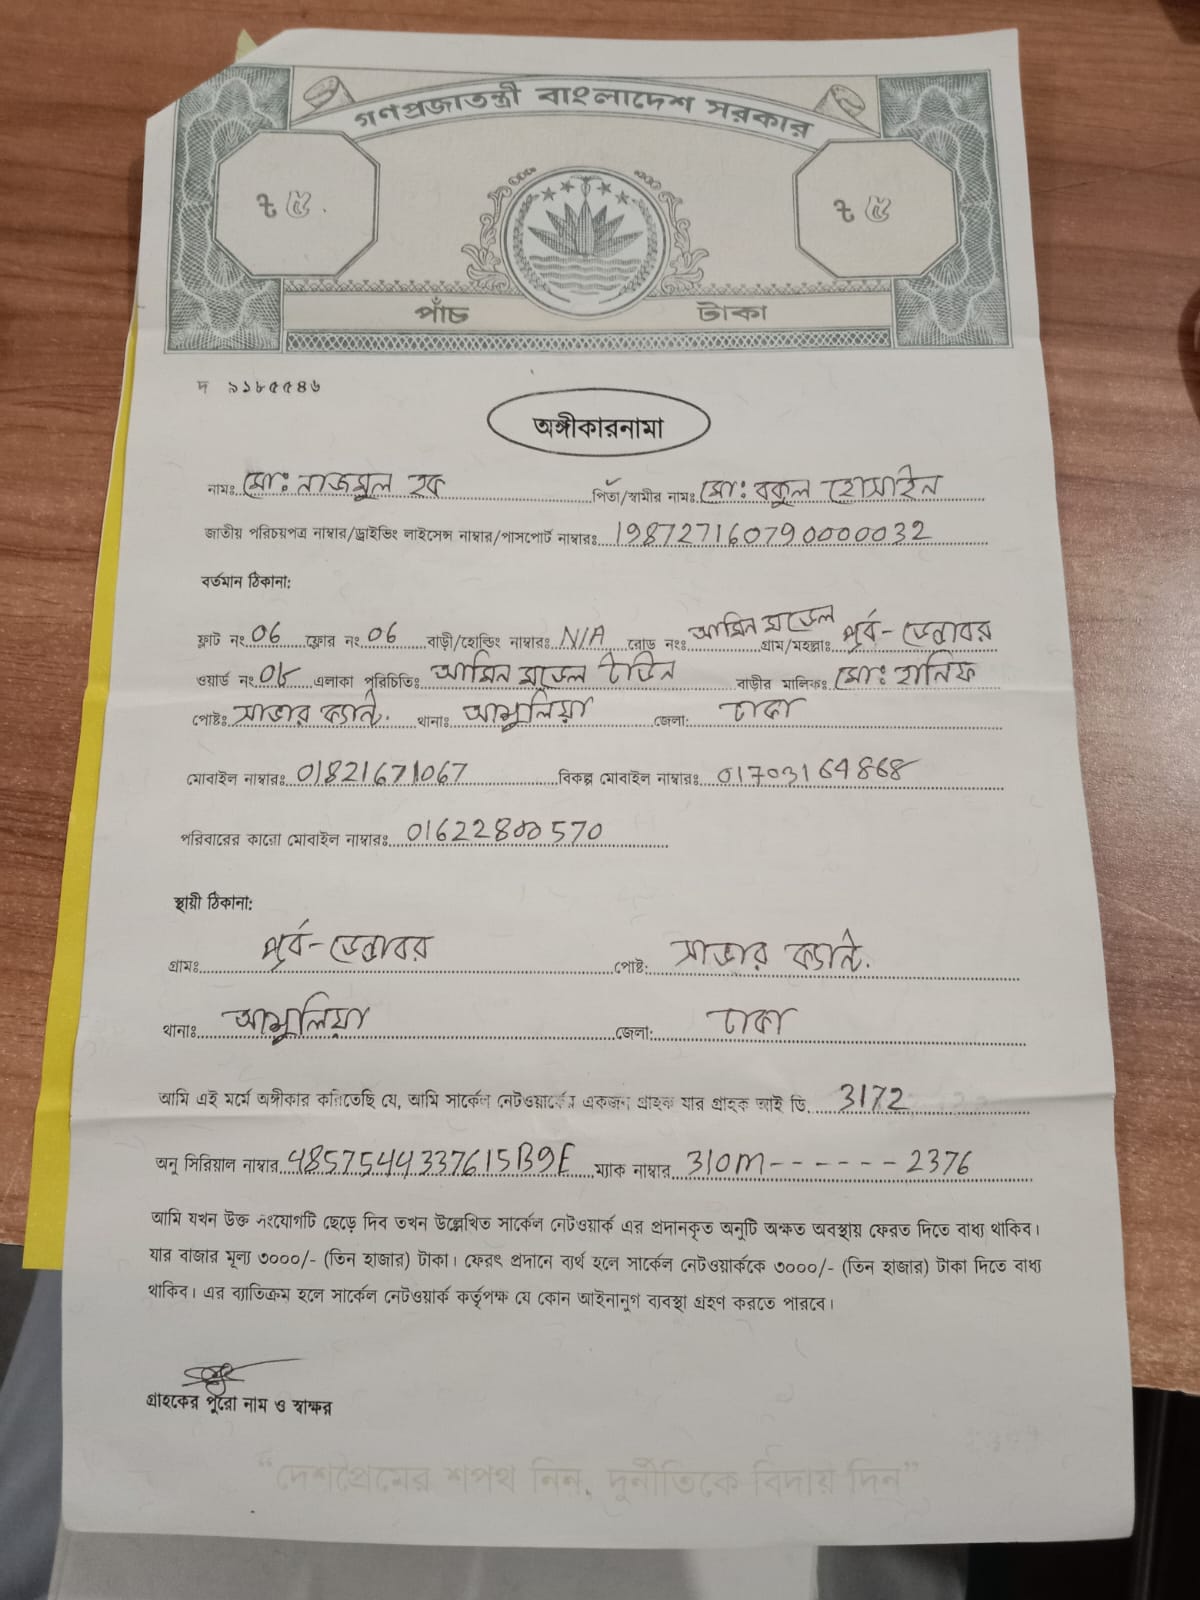 গণপ্রজাতন্ত্রী বাংলাদেশ সরকার
৳ ৫ ৳ ৫
পাঁচ টাকা
দ ৯১৮৫৫৪৬
অঙ্গীকারনামা
নামঃ মোঃ নাজমুল হক পিতা/স্বামীর নামঃ মোঃ বকুল হোসাইন
জাতীয় পরিচয়পত্র নাম্বার/ড্রাইভিং লাইসেন্স নাম্বার/পাসপোর্ট নাম্বারঃ 19872716079000032
বর্তমান ঠিকানা:
ফ্লাট নং 06 ফ্লোর নং 06 বাড়ী/হোল্ডিং নাম্বারঃ N/A রোড নংঃ আমিন মডেল গ্রাম/মহল্লাঃ পূর্ব-ডেন্ডাবর
ওয়ার্ড নং 08 এলাকা পরিচিতিঃ আমিন মডেল টাউন বাড়ীর মালিকঃ মোঃ হানিফ
পোষ্টঃ সাভার ক্যান্ট. থানাঃ আশুলিয়া জেলা: ঢাকা
মোবাইল নাম্বারঃ 01821671067 বিকল্প মোবাইল নাম্বারঃ 01703164868
পরিবারের কারো মোবাইল নাম্বারঃ 01622800570
স্থায়ী ঠিকানা:
গ্রামঃ পূর্ব-ডেন্ডাবর পোষ্ট: সাভার ক্যান্ট.
থানাঃ আশুলিয়া জেলা: ঢাকা
আমি এই মর্মে অঙ্গীকার করিতেছি যে, আমি সার্কেল নেটওয়ার্কের একজন গ্রাহক যার গ্রাহক আই ডি. 3172
অনু সিরিয়াল নাম্বার 4857544337615B9E ম্যাক নাম্বার 310m------2376
আমি যখন উক্ত সংযোগটি ছেড়ে দিব তখন উল্লেখিত সার্কেল নেটওয়ার্ক এর প্রদানকৃত অনুটি অক্ষত অবস্থায় ফেরত দিতে বাধ্য থাকিব।
যার বাজার মূল্য ৩০০০/- (তিন হাজার) টাকা। ফেরৎ প্রদানে ব্যর্থ হলে সার্কেল নেটওয়ার্ককে ৩০০০/- (তিন হাজার) টাকা দিতে বাধ্য
থাকিব। এর ব্যাতিক্রম হলে সার্কেল নেটওয়ার্ক কর্তৃপক্ষ যে কোন আইনানুগ ব্যবস্থা গ্রহণ করতে পারবে।
গ্রাহকের পুরো নাম ও স্বাক্ষর
“দেশপ্রেমের শপথ নিন, দুর্নীতিকে বিদায় দিন”